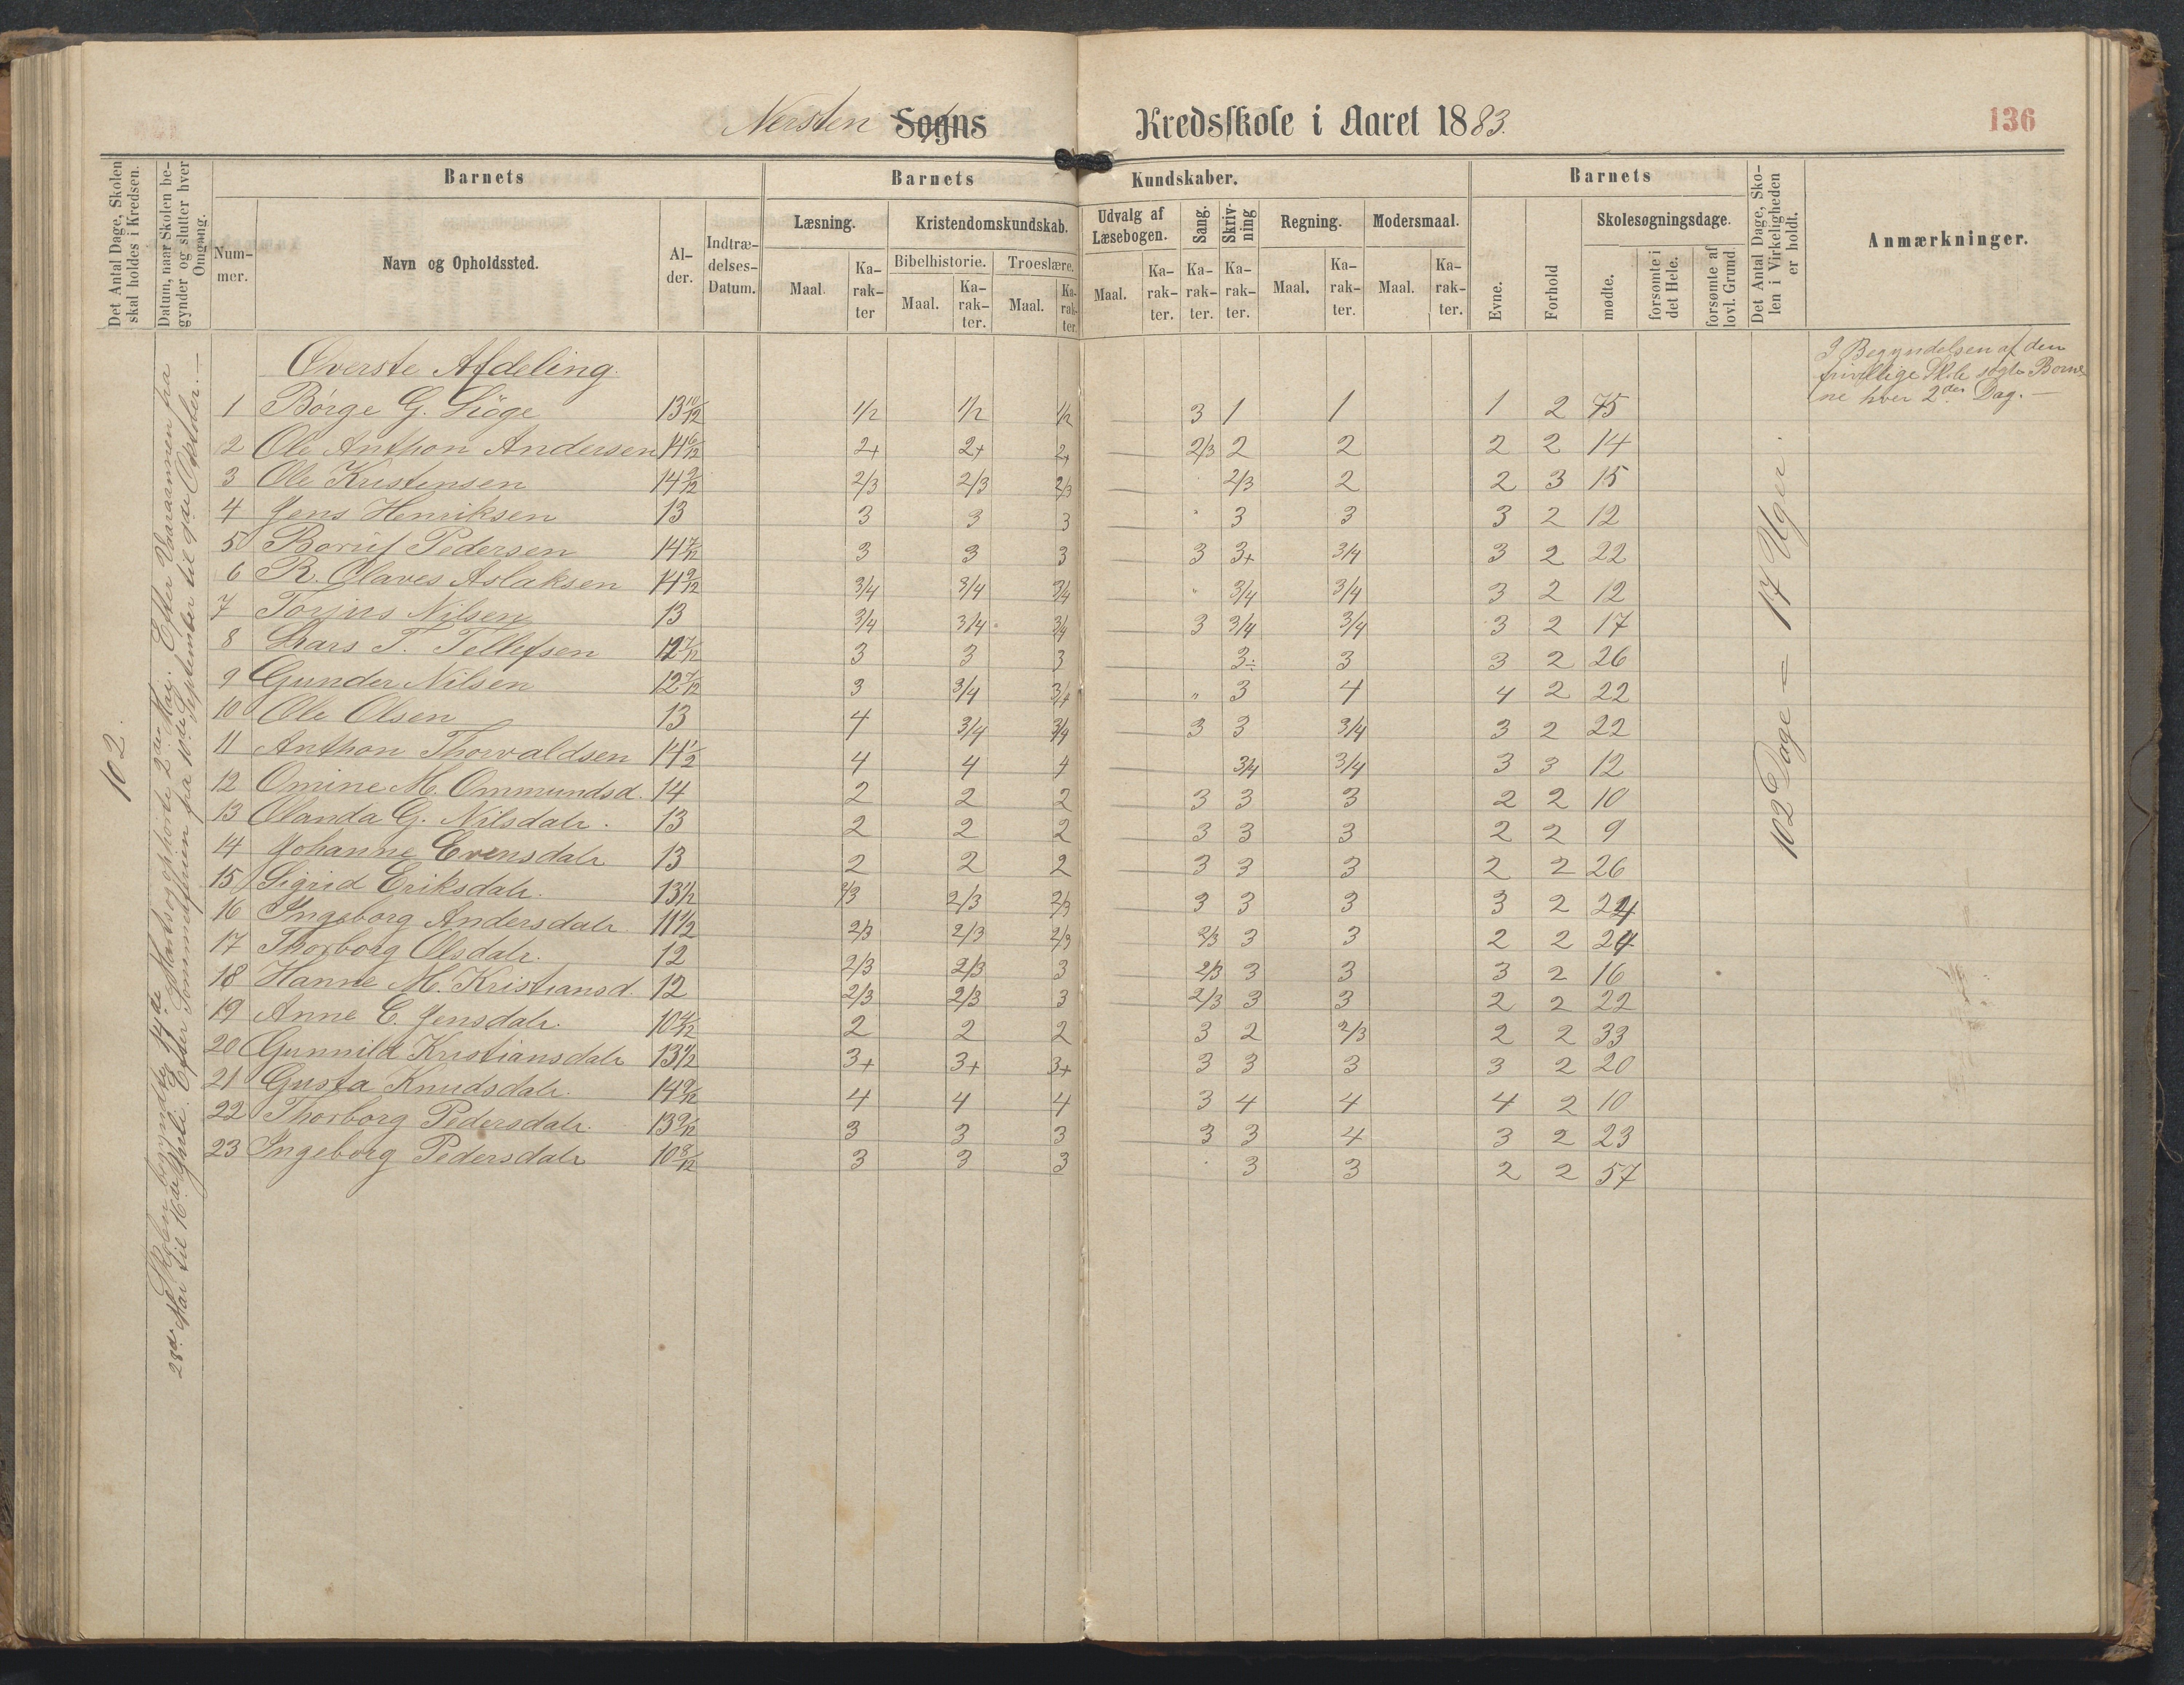 Nersten Sogns Kredsskole i Aaret 1883.
136
Det Antal Dage, Skolen skal holdes i Kredsen.
Datum, naar Skolen begynder og slutter hver Omgang.
Barnets
Nummer.
Navn og Opholdssted.
Alder.
Indtrædelses-Datum.
Barnets Kundskaber.
Læsning.
Maal
Karakter
Kristendomskundskab.
Bibelhistorie.
Maal.
Karakter.
Troeslære.
Maal.
Karakter.
Udvalg af Læsebogen.
Maal.
Karakter.
Sang.
Karakter.
Skrivning
Karakter.
Regning.
Maal.
Karakter.
Modersmaal.
Maal.
Karakter.
Barnets
Evne.
Forhold
Skolesøgningsdage.
mødte.
forsømte i det Hele.
forsømte af lovl. Grund
Det Antal Dage, Skolen i Virkeligheden er holdt.
Anmærkninger.
Øverste Afdeling.
I Begyndelsen af den
frivillige Skole søgte Børne-
ne hver 2den Dag. —
1 Børge G. 13 10/12 1/2 1/2 1/2 3 1 1 1 2 75
2 Ole Anthon Andersen 14 6/12 2+ 2+ 2+ 2/3 2 2 2 2 14
3 Ole Kristensen 14 2/12 2/3 2/3 2/3 2/3 2 2 3 15
4 Jens Henriksen 13 3 3 3 " 3 3 3 2 12
5 Pedersen 14 7/12 3 3 3 3 3+ 3/4 3 2 22
6 R. Olaves Aslaksen 14 9/12 3/4 3/4 3/4 " 3/4 3/4 3 2 12
7 Torjus Nilsen 13 3/4 3/4 3/4 3 3/4 3/4 3 2 17
8 Lars T. Tellefsen 12 7/12 3 3 3 3÷ 3 3 2 26
9 Gunder Nilsen 12 7/12 3 3/4 3/4 " 3 4 4 2 22
10 Ole Olsen 13 4 3/4 3/4 3 3 3/4 3 2 22
11 Anthon Thorvaldsen 14 1/2 4 4 4 3/4 3/4 3 3 12
12 Omine M. Ommundsd. 14 2 2 2 3 3 3 2 2 10
13 Olanda G. Nilsdatr. 13 2 2 2 3 3 3 2 2 9
14 Johanne Evensdatr 13 2 2 2 3 3 3 2 2 26
15 Sigrid Eriksdatr. 13 1/2 2/3 2/3 2/3 3 3 3 3 2 24
16 Ingeborg Andersdatr. 11 1/2 2/3 2/3 2/3 2/3 3 3 2 2 24
17 Thorborg Olsdatr. 12 2/3 2/3 3 2/3 3 3 3 2 16
18 Hanne M. Kristiansd. 12 2/3 2/3 3 2/3 3 3 2 2 22
19 Anne C. Jensdatr. 10 4/12 2 2 2 3 2 2/3 2 2 33
20 Gunnild Kristiansdatr 13 1/2 3+ 3+ 3+ 3 3 3 3 2 20
21 Gusta Knudsdatr. 14 9/12 4 4 4 3 4 4 4 2 10
22 Thorborg Pedersdatr. 13 9/12 3 3 3 3 3 4 3 2 23
23 Ingeborg Pedersdatr 10 8/12 3 3 3 3 3 2 2 57
102.
Skolen begyndte 14de Marts og ophørte 2den Mai. Efter Vaaraannen fra
28de Mai til 16de Juli. Efter Sommerferien fra 10de September til 9de Oktober. —
102 Dage = 17 Uger.